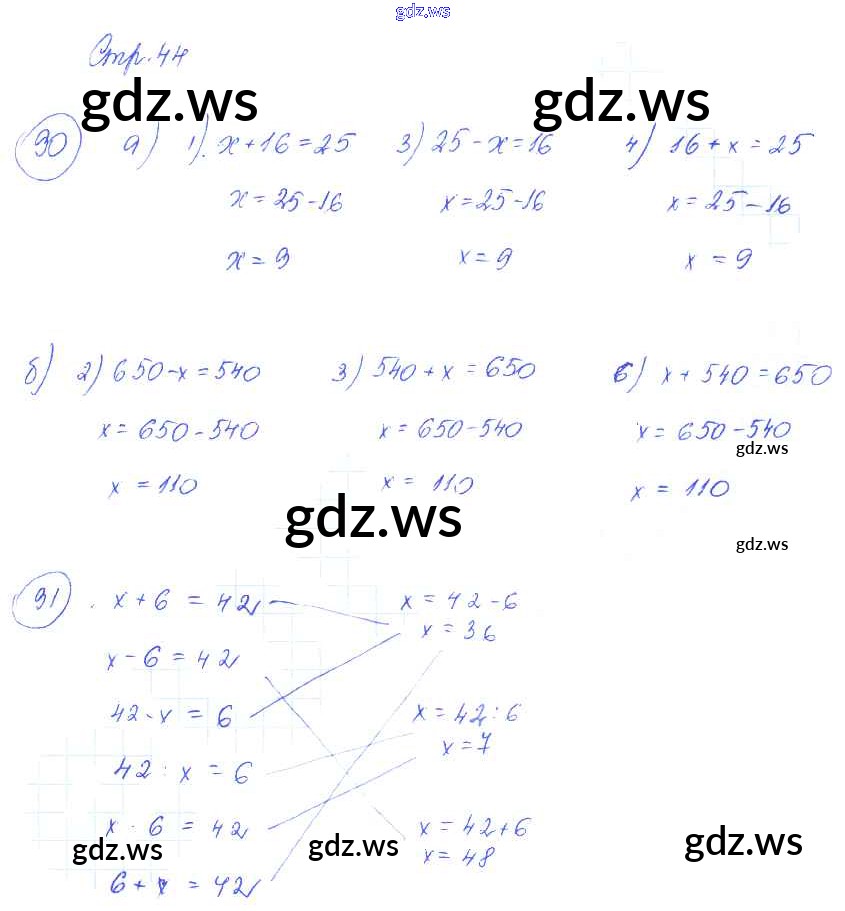 gdz.ws
Стр. 44
gdz.ws gdz.ws
90 а) 1). x + 16 = 25 3) 25 - x = 16 4) 16 + x = 25
x = 25 - 16 x = 25 - 16 x = 25 - 16
x = 9 x = 9 x = 9
б) 2) 650 - x = 540 3) 540 + x = 650 6) x + 540 = 650
x = 650 - 540 x = 650 - 540 x = 650 - 540
gdz.ws
x = 110 x = 110 x = 110
gdz.ws
gdz.ws
91. x + 6 = 42 x = 42 - 6
x = 36
x - 6 = 42
42 - x = 6 x = 42 : 6
x = 7
42 : x = 6
x · 6 = 42 x = 42 + 6
gdz.ws gdz.ws x = 48 gdz.ws
6 + x = 42